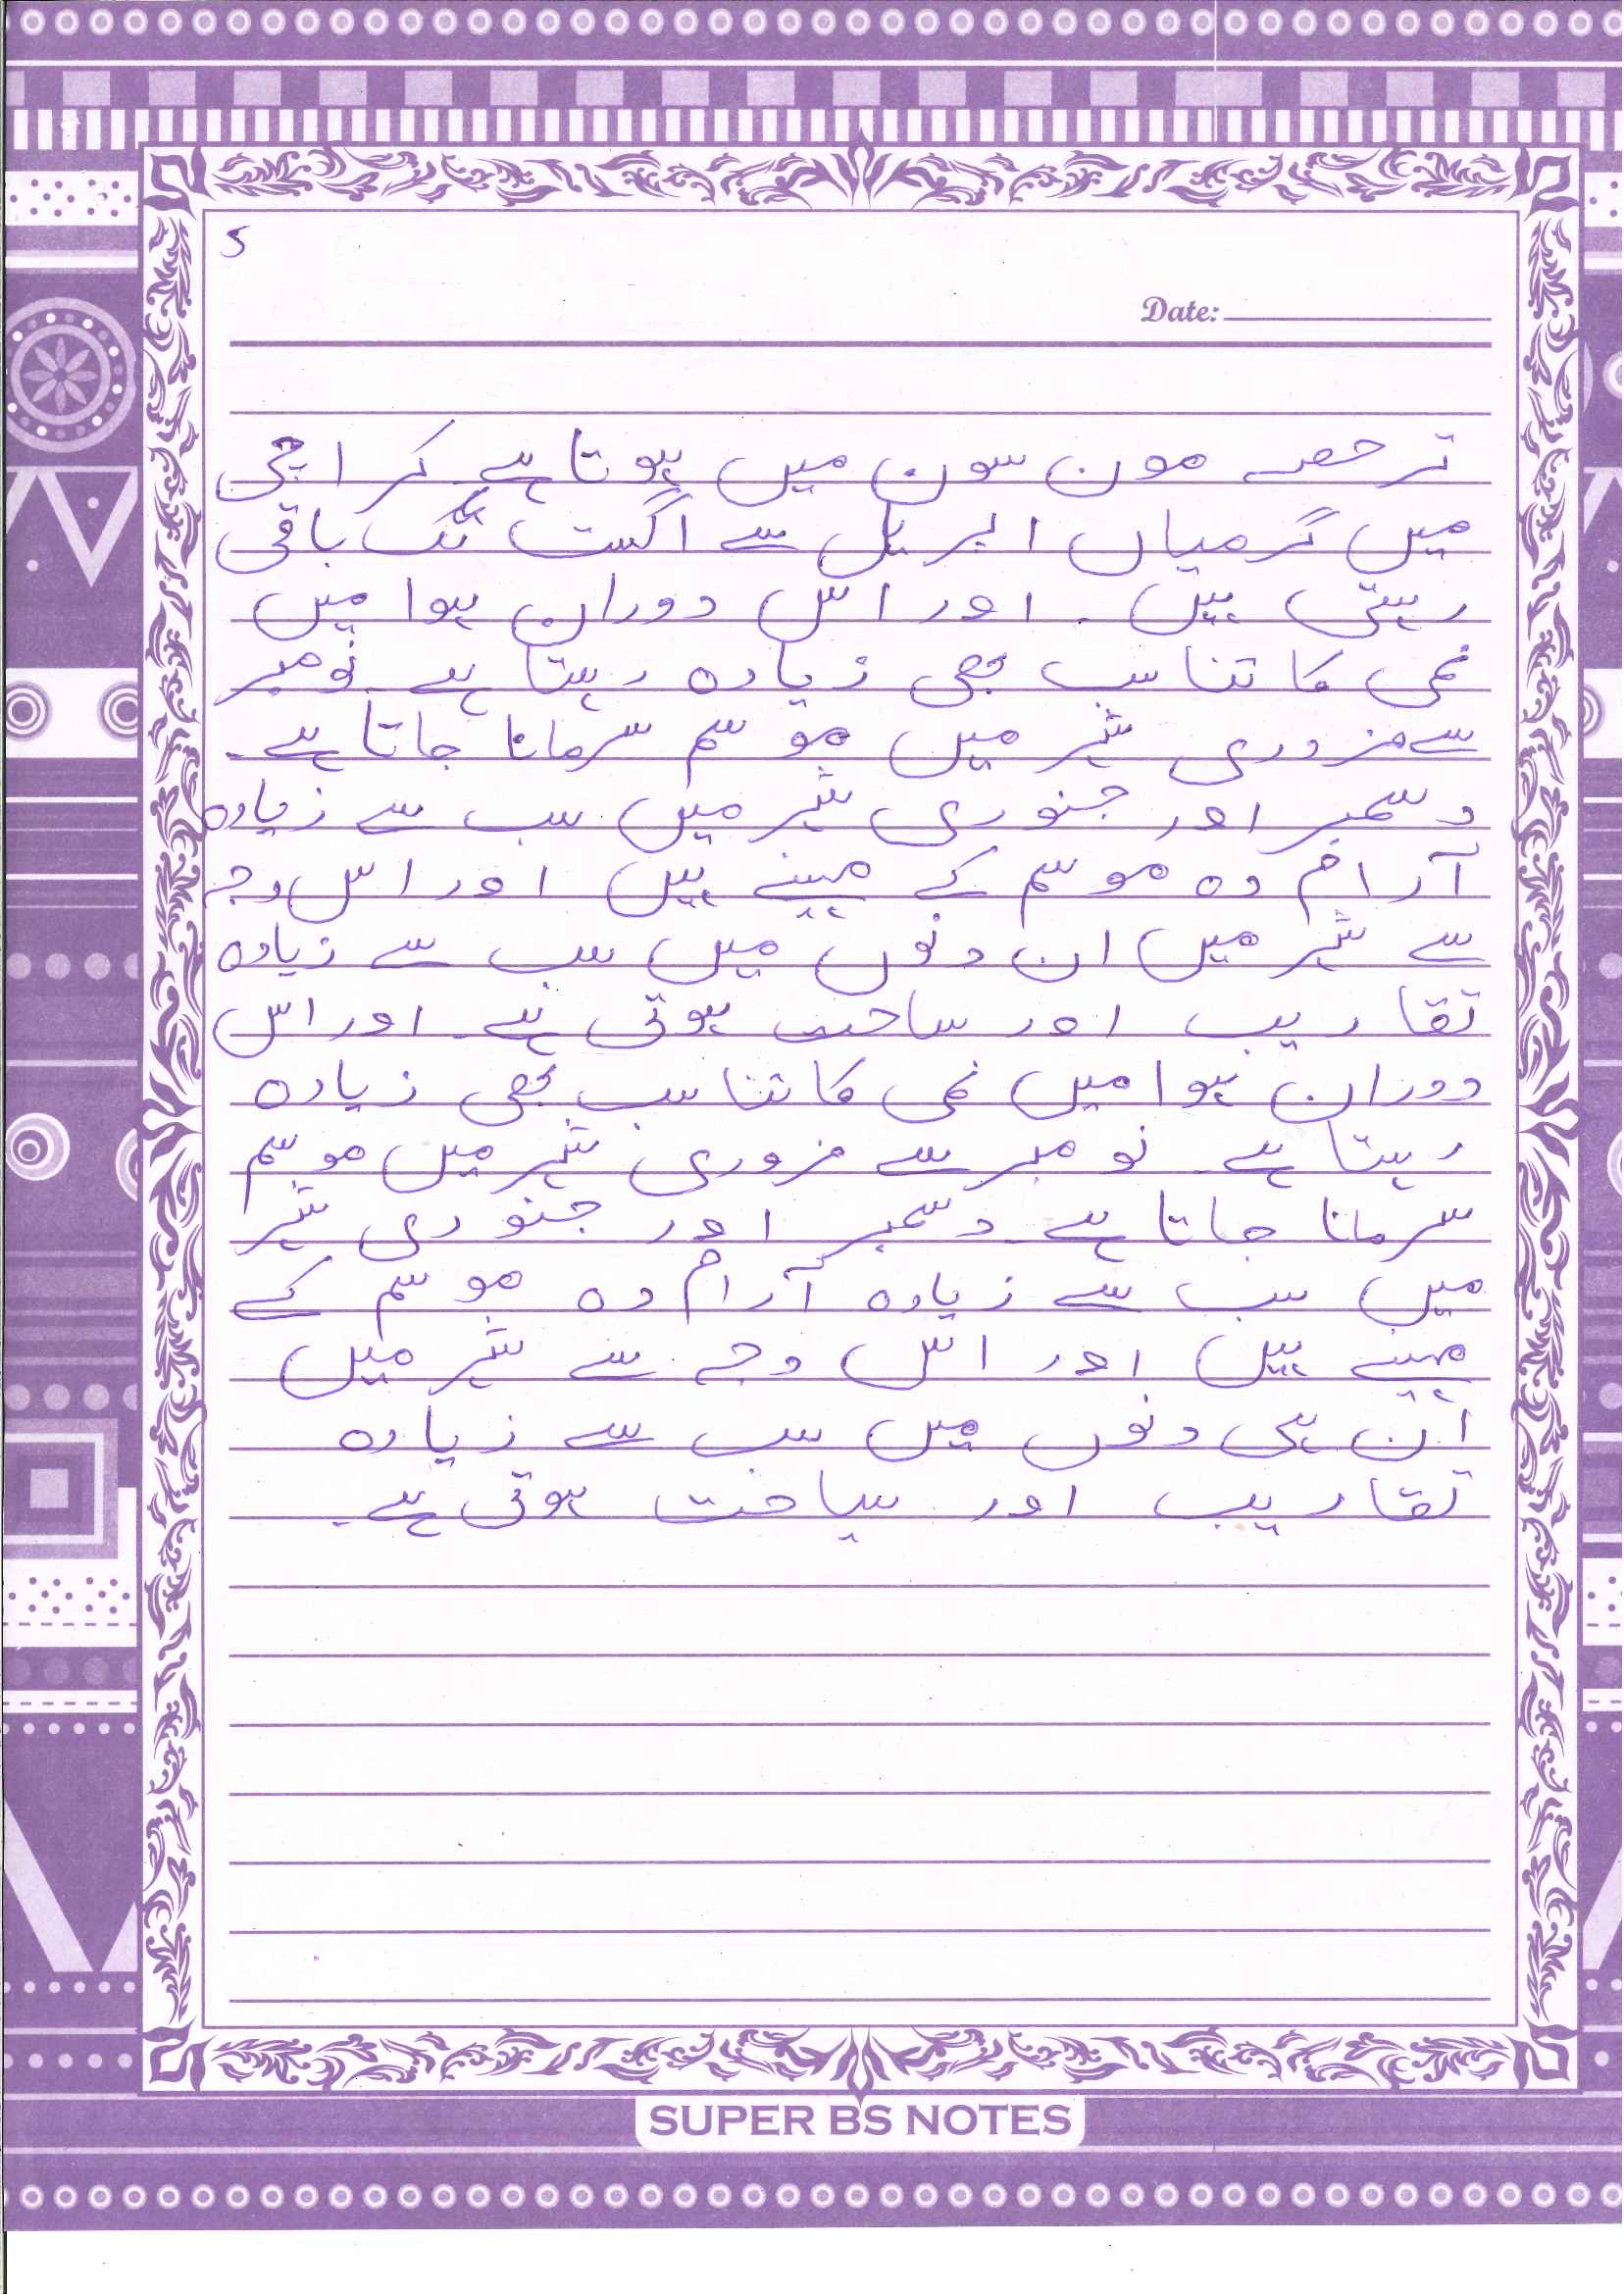 5
Date:
تر حصہ مون سون میں ہوتا ہے کراچی
میں گرمیاں اپریل سے اگست تک باقی
رہتی ہیں۔ اور اس دوران ہوا میں
نمی کا تناسب بھی زیادہ رہتا ہے۔ نومبر
سے فروری شہر میں موسم سرمانا جاتا ہے۔
دسمبر اور جنوری شہر میں سب سے زیادہ
آرام دہ موسم کے مہینے ہیں اور اس وجہ
سے شہر میں ان دنوں میں سب سے زیادہ
تقاریب اور ساحت ہوتی ہے۔ اور اس
دوران ہوا میں نمی کا تناسب بھی زیادہ
رہتا ہے۔ نومبر سے فروری شہر میں موسم
سرمانا جاتا ہے۔ دسمبر اور جنوری شہر
میں سب سے زیادہ آرام دہ موسم کے
مہینے ہیں اور اس وجہ سے شہر میں
ان ہی دنوں میں سب سے زیادہ
تقاریب اور سیاحت ہوتی ہے۔
SUPER BS NOTES